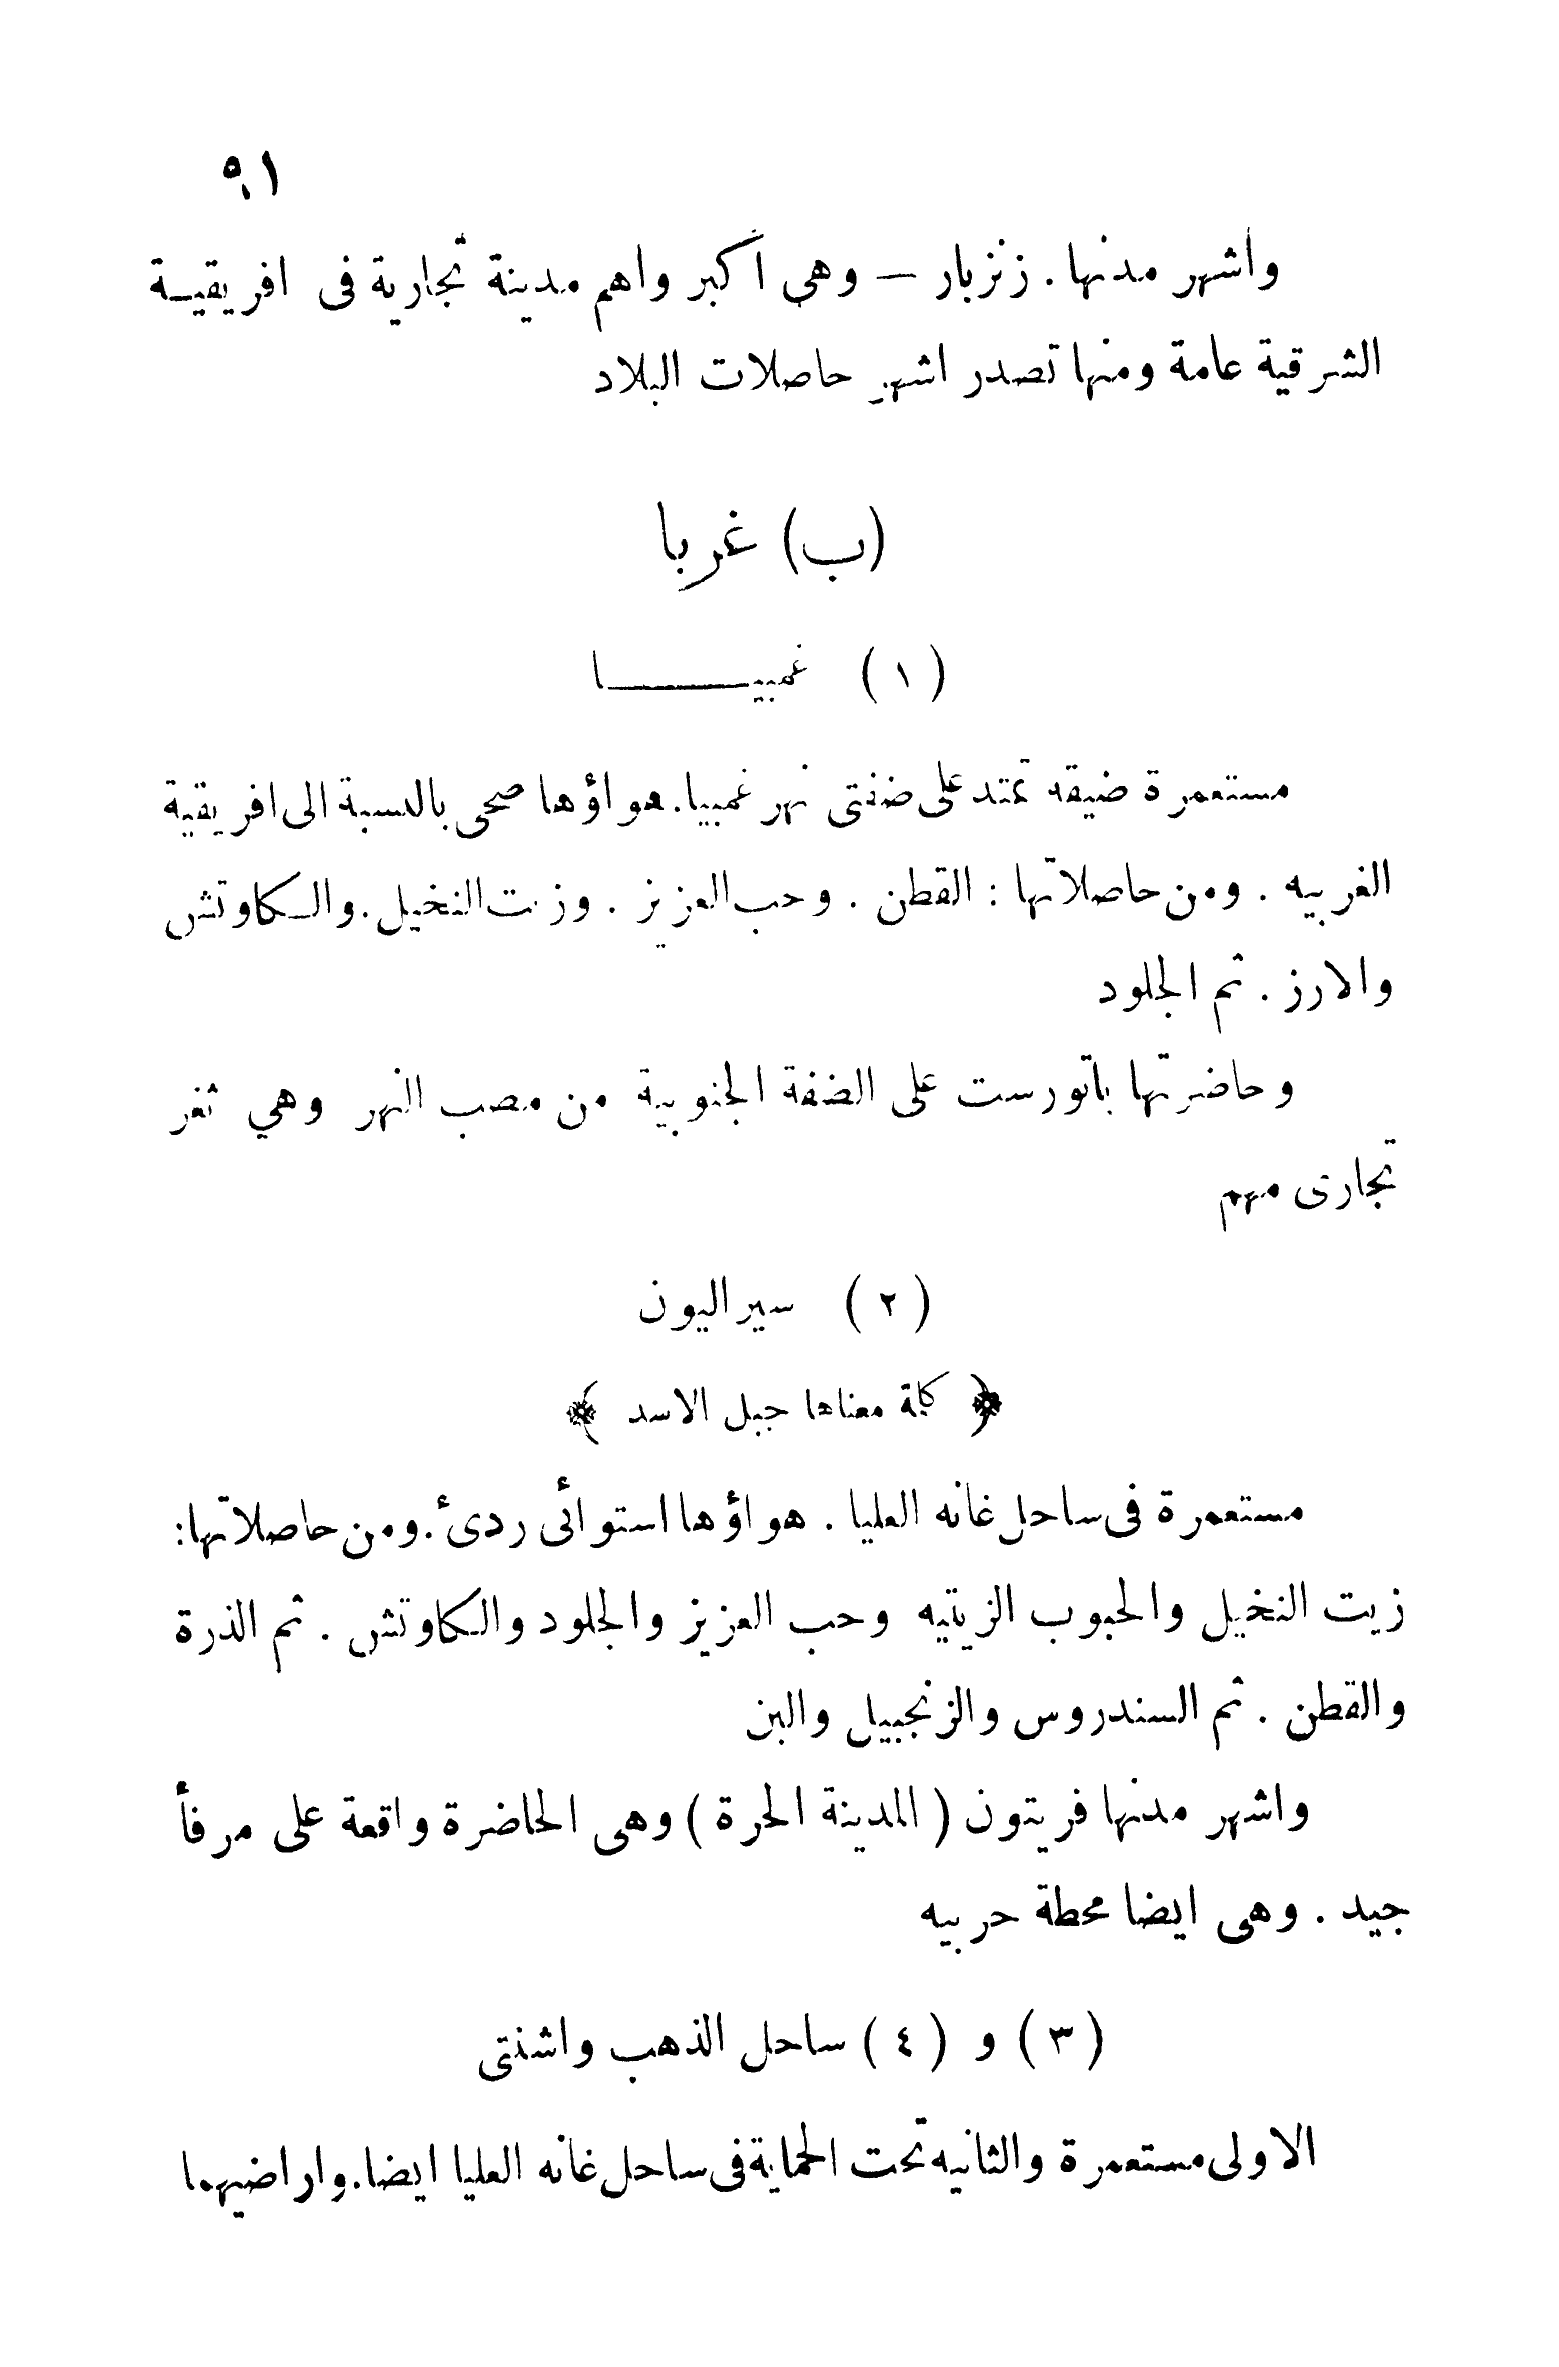 ٩١
واشهر مدنها . زنزبار — وهي اكبر واهم مدينة تجارية فى افريقيـة
الشرقية عامة ومنها تصدر اشهر حاصلات البلاد
(ب) غربا
( ١ ) غمبيــــــا
مستعمرة ضيقه تمتد على ضفتى نهر غمبيا . هواؤها صحى بالنسبة الى افريقية
الغربيه . ومن حاصلاتها : القطن . وحب العزيز . وزيت النخيل . والـكاوتش
والارز . ثم الجلود
وحاضرتها باتورست على الضفة الجنوبية من مصب النهر وهي ثغر
تجارى مهم
( ٢ ) سيراليون
﴿ كلمة معناها جبل الاسد ﴾
مستعمرة فى ساحل غانه العليا . هواؤها استوائى ردئ . ومن حاصلاتها :
زيت النخيل والحبوب الزيتيه وحب العزيز والجلود والـكاوتش . ثم الذرة
والقطن . ثم السندروس والزنجبيل والبن
واشهر مدنها فريتون ( المدينة الحرة ) وهى الحاضرة واقعة على مرفأ
جيد . وهى ايضا محطة حربيه
( ٣ ) و ( ٤ ) ساحل الذهب واشنتى
الاولى مستعمرة والثانيه تحت الحماية فى ساحل غانه العليا ايضا . واراضيهما